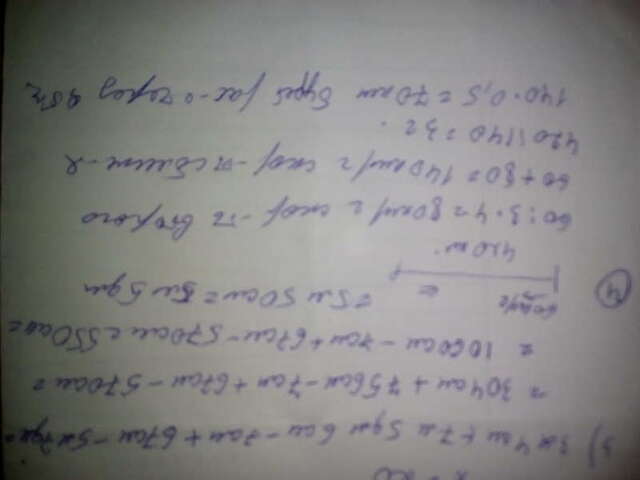 3) 3м 4см + 7м 5дм 6см - 7см + 67см - 5м 7дм =
= 304см + 756см - 7см + 67см - 570см =
= 1060см - 7см + 67см - 570см = 550см =
= 5м 50см = 5м 5дм
4) 60км/ч
420км.
60:3·4 = 80км/ч скор-ть второго
60 + 80 = 140км/ч скор-
420:140 = 3ч.
140·0,5 = 70км будет рас-